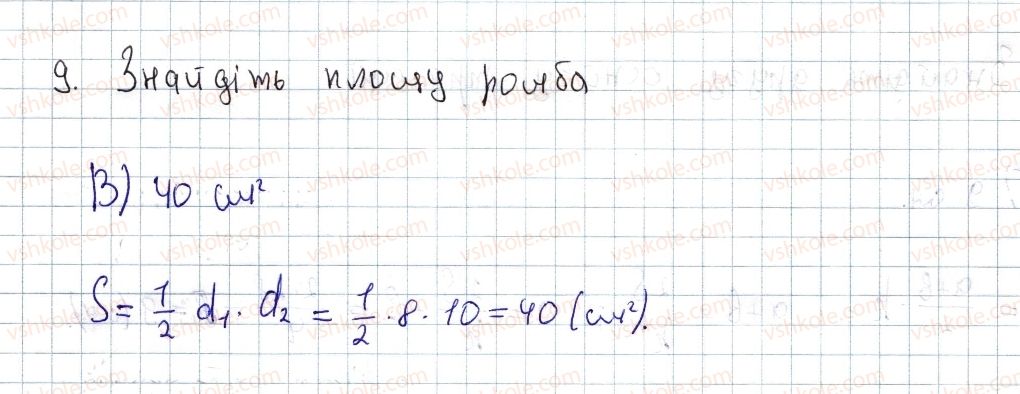 9. Знайдіть площу ромба
В) 40 см²
S = 1/2 d₁ · d₂ = 1/2 · 8 · 10 = 40 (см²).